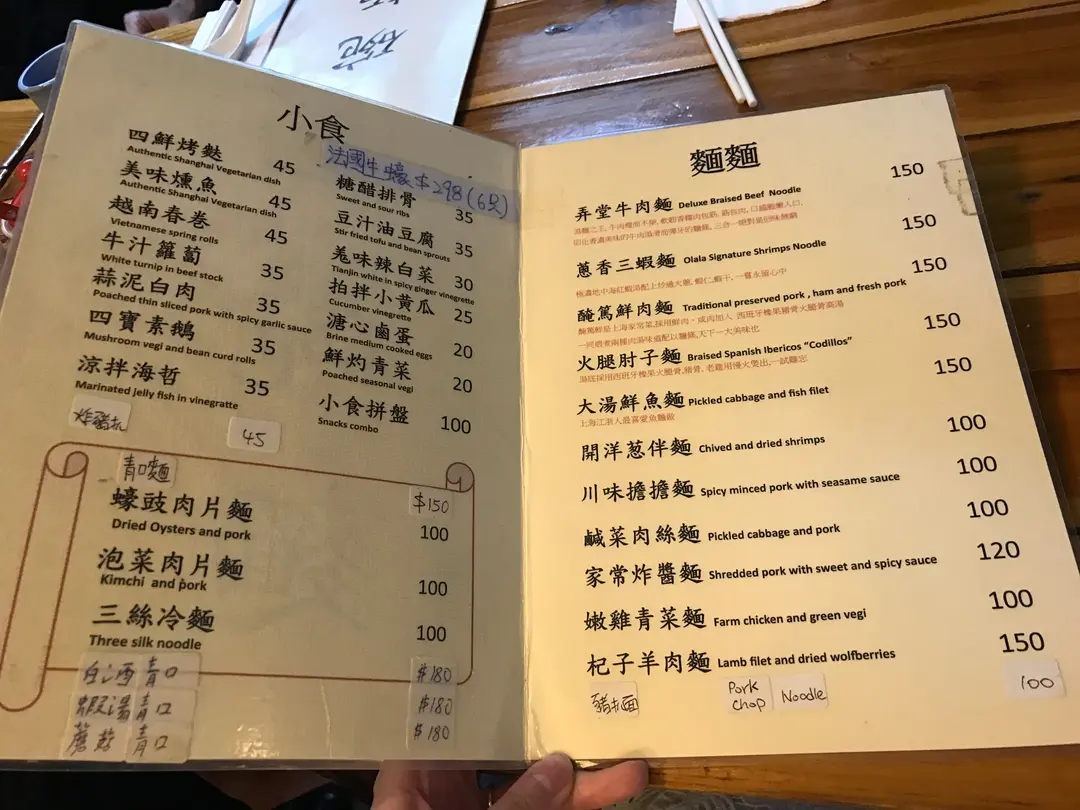 小食
法國生蠔 $298 (6只)
四鮮烤麩 45
Authentic Shanghai Vegetarian dish
美味燻魚 45
Authentic Shanghai Vegetarian dish
越南春卷 45
Vietnamese spring rolls
牛汁籮蔔 35
White turnip in beef stock
蒜泥白肉 35
Poached thin sliced pork with spicy garlic sauce
四寶素鵝 35
Mushroom vegi and bean curd rolls
涼拌海哲 35
Marinated jelly fish in vinegratte
炸豬扒 45
糖醋排骨 35
Sweet and sour ribs
豆汁油豆腐 35
Stir fried tofu and bean sprouts
羗味辣白菜 30
Tianjin white in spicy ginger vinegrette
拍拌小黃瓜 25
Cucumber vinegrette
溏心鹵蛋 20
Brine medium cooked eggs
鮮灼青菜 20
Poached seasonal vegi
小食拼盤 100
Snacks combo
青口麵 $150
蠔豉肉片麵 100
Dried Oysters and pork
泡菜肉片麵 100
Kimchi and pork
三絲冷麵 100
Three silk noodle
白酒青口 $180
蝦湯青口 $180
蘑菇青口 $180
麵麵
弄堂牛肉麵 Deluxe Braised Beef Noodle 150
蔥香三蝦麵 Olala Signature Shrimps Noodle 150
醃篤鮮肉麵 Traditional preserved pork , ham and fresh pork 150
火腿肘子麵 Braised Spanish Ibericos “Codillos” 150
大湯鮮魚麵 Pickled cabbage and fish filet 150
上海江浙人最喜愛魚麵做
開洋葱伴麵 Chived and dried shrimps 100
川味擔擔麵 Spicy minced pork with seasame sauce 100
鹹菜肉絲麵 Pickled cabbage and pork 100
家常炸醬麵 Shredded pork with sweet and spicy sauce 120
嫩雞青菜麵 Farm chicken and green vegi 100
杞子羊肉麵 Lamb filet and dried wolfberries 150
豬扒面 Pork chop Noodle 100